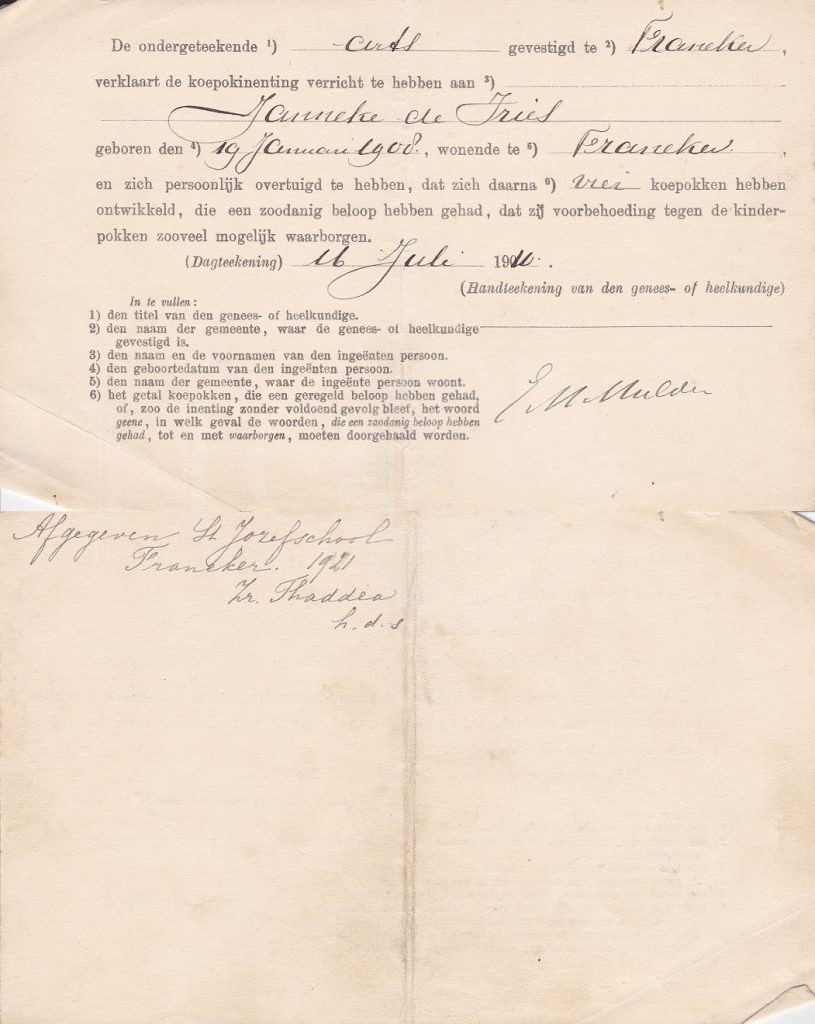 De ondergeteekende ¹) arts gevestigd te ²) Franeker,
verklaart de koepokinenting verricht te hebben aan ³)
Janneke de Vries
geboren den ⁴) 19 Januari 1908., wonende te ⁵) Franeker.,
en zich persoonlijk overtuigd te hebben, dat zich daarna ⁶) vier koepokken hebben
ontwikkeld, die een zoodanig beloop hebben gehad, dat zij voorbehoeding tegen de kinder-
pokken zooveel mogelijk waarborgen.
(Dagteekening) 16 Juli 1910.
(Handteekening van den genees- of heelkundige)
In te vullen:
1) den titel van den genees- of heelkundige.
2) den naam der gemeente, waar de genees- of heelkundige
gevestigd is.
3) den naam en de voornamen van den ingeënten persoon.
4) den geboortedatum van den ingeënten persoon.
5) den naam der gemeente, waar de ingeënte persoon woont.
6) het getal koepokken, die een geregeld beloop hebben gehad,
of, zoo de inenting zonder voldoend gevolg bleef, het woord
geene, in welk geval de woorden, die een zoodanig beloop hebben
gehad, tot en met waarborgen, moeten doorgehaald worden.
E M Mulder
Afgegeven St Jozefschool
Franeker. 1921
Zr. Thaddea
h. d. s